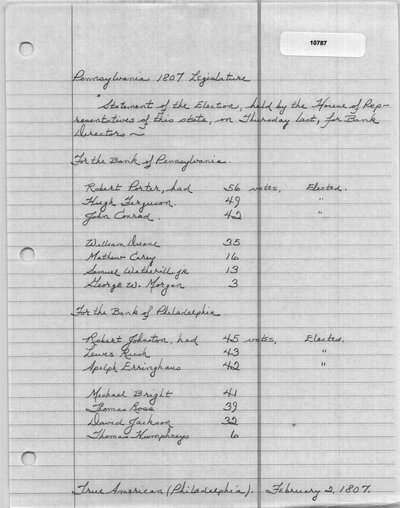 10787
Pennsylvania 1807 Legislature
"Statement of the Election, held by the House of Rep-
resentatives of this state, on Thursday last, for Bank
Directors ~
For the Bank of Pennsylvania.
Robert Porter, had 56 votes, Elected.
Hugh Ferguson. 49 "
John Conrad. 42 "
William Duane 35
Mathew Carey 16
Samuel Wetherill jr 13
George W. Morgan 3
For the Bank of Philadelphia
Robert Johnston, had 45 votes, Elected.
Lewis Rush 43 "
Adolph Erringhaus 42 "
Michael Bright 41
Thomas Ross 39
David Jackson 32 "
Thomas Humphreys 6
True American (Philadelphia). February 2, 1807.